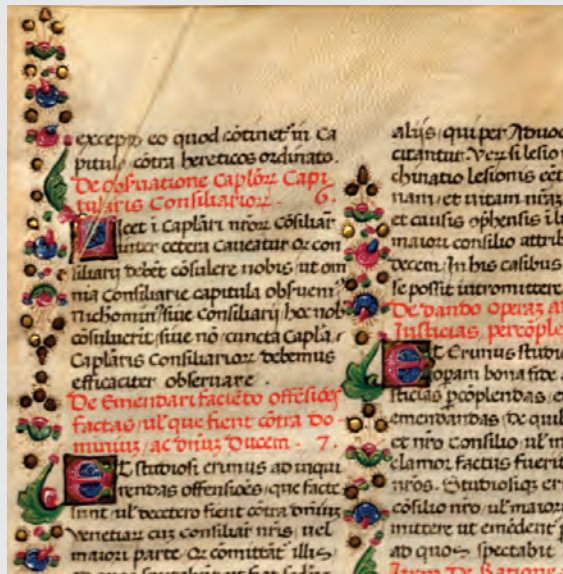 excepto eo quod cōtinet in Ca
pitulo cōtra hereticos ordinato.
De obſuatione Caplōꝝ Capi
tularis Consiliarioꝝ. 6.
Licet i Caplari nr̄oꝝ cōsiliar
inter cetera caueatur qꝫ con
siliarij debēt cōsulere nobis ut om
nia consiliarie capitula obſuem
nichomin⁹ siue consiliarij hoc nob
cōsuluerit siue nō cuncta Capla
Caplaris Consiliarioꝝ debemus
efficaciter obseruare.
De Emendari faciēto offēsiōes
factas ul̓ que fient cōtra do
miniuꝫ ac dn̄uꝫ Ducem. 7.
Et studiosi erimus ad inqui
rendas offensiōes que facte
sunt ul̓ decetero fient cōtra dn̄iuꝫ
Venetiaꝝ cuꝫ consiliar nr̄is uel
maiori parte qꝫ comittāt illis
alijs qui per Aduoc
citantur. Veꝝ si lesio
chinatio lesionis
nam et uitam nr̄aꝫ
et causis
maiori consilio attrib
decem. In his casibus
se possit intromittere
De dando operaꝫ
Iusticias percōple
Et Erimus studio
opam bona fide
sticias pcōplendas
emendandas de quib
et nr̄o Consilio ul̓ m
clamor factus fuerit
nr̄os. Studiosiqꝫ er
cōsilio nr̄o ul̓ maior
mittere ut emēdent
ad quos spectabit
Item De Ratione